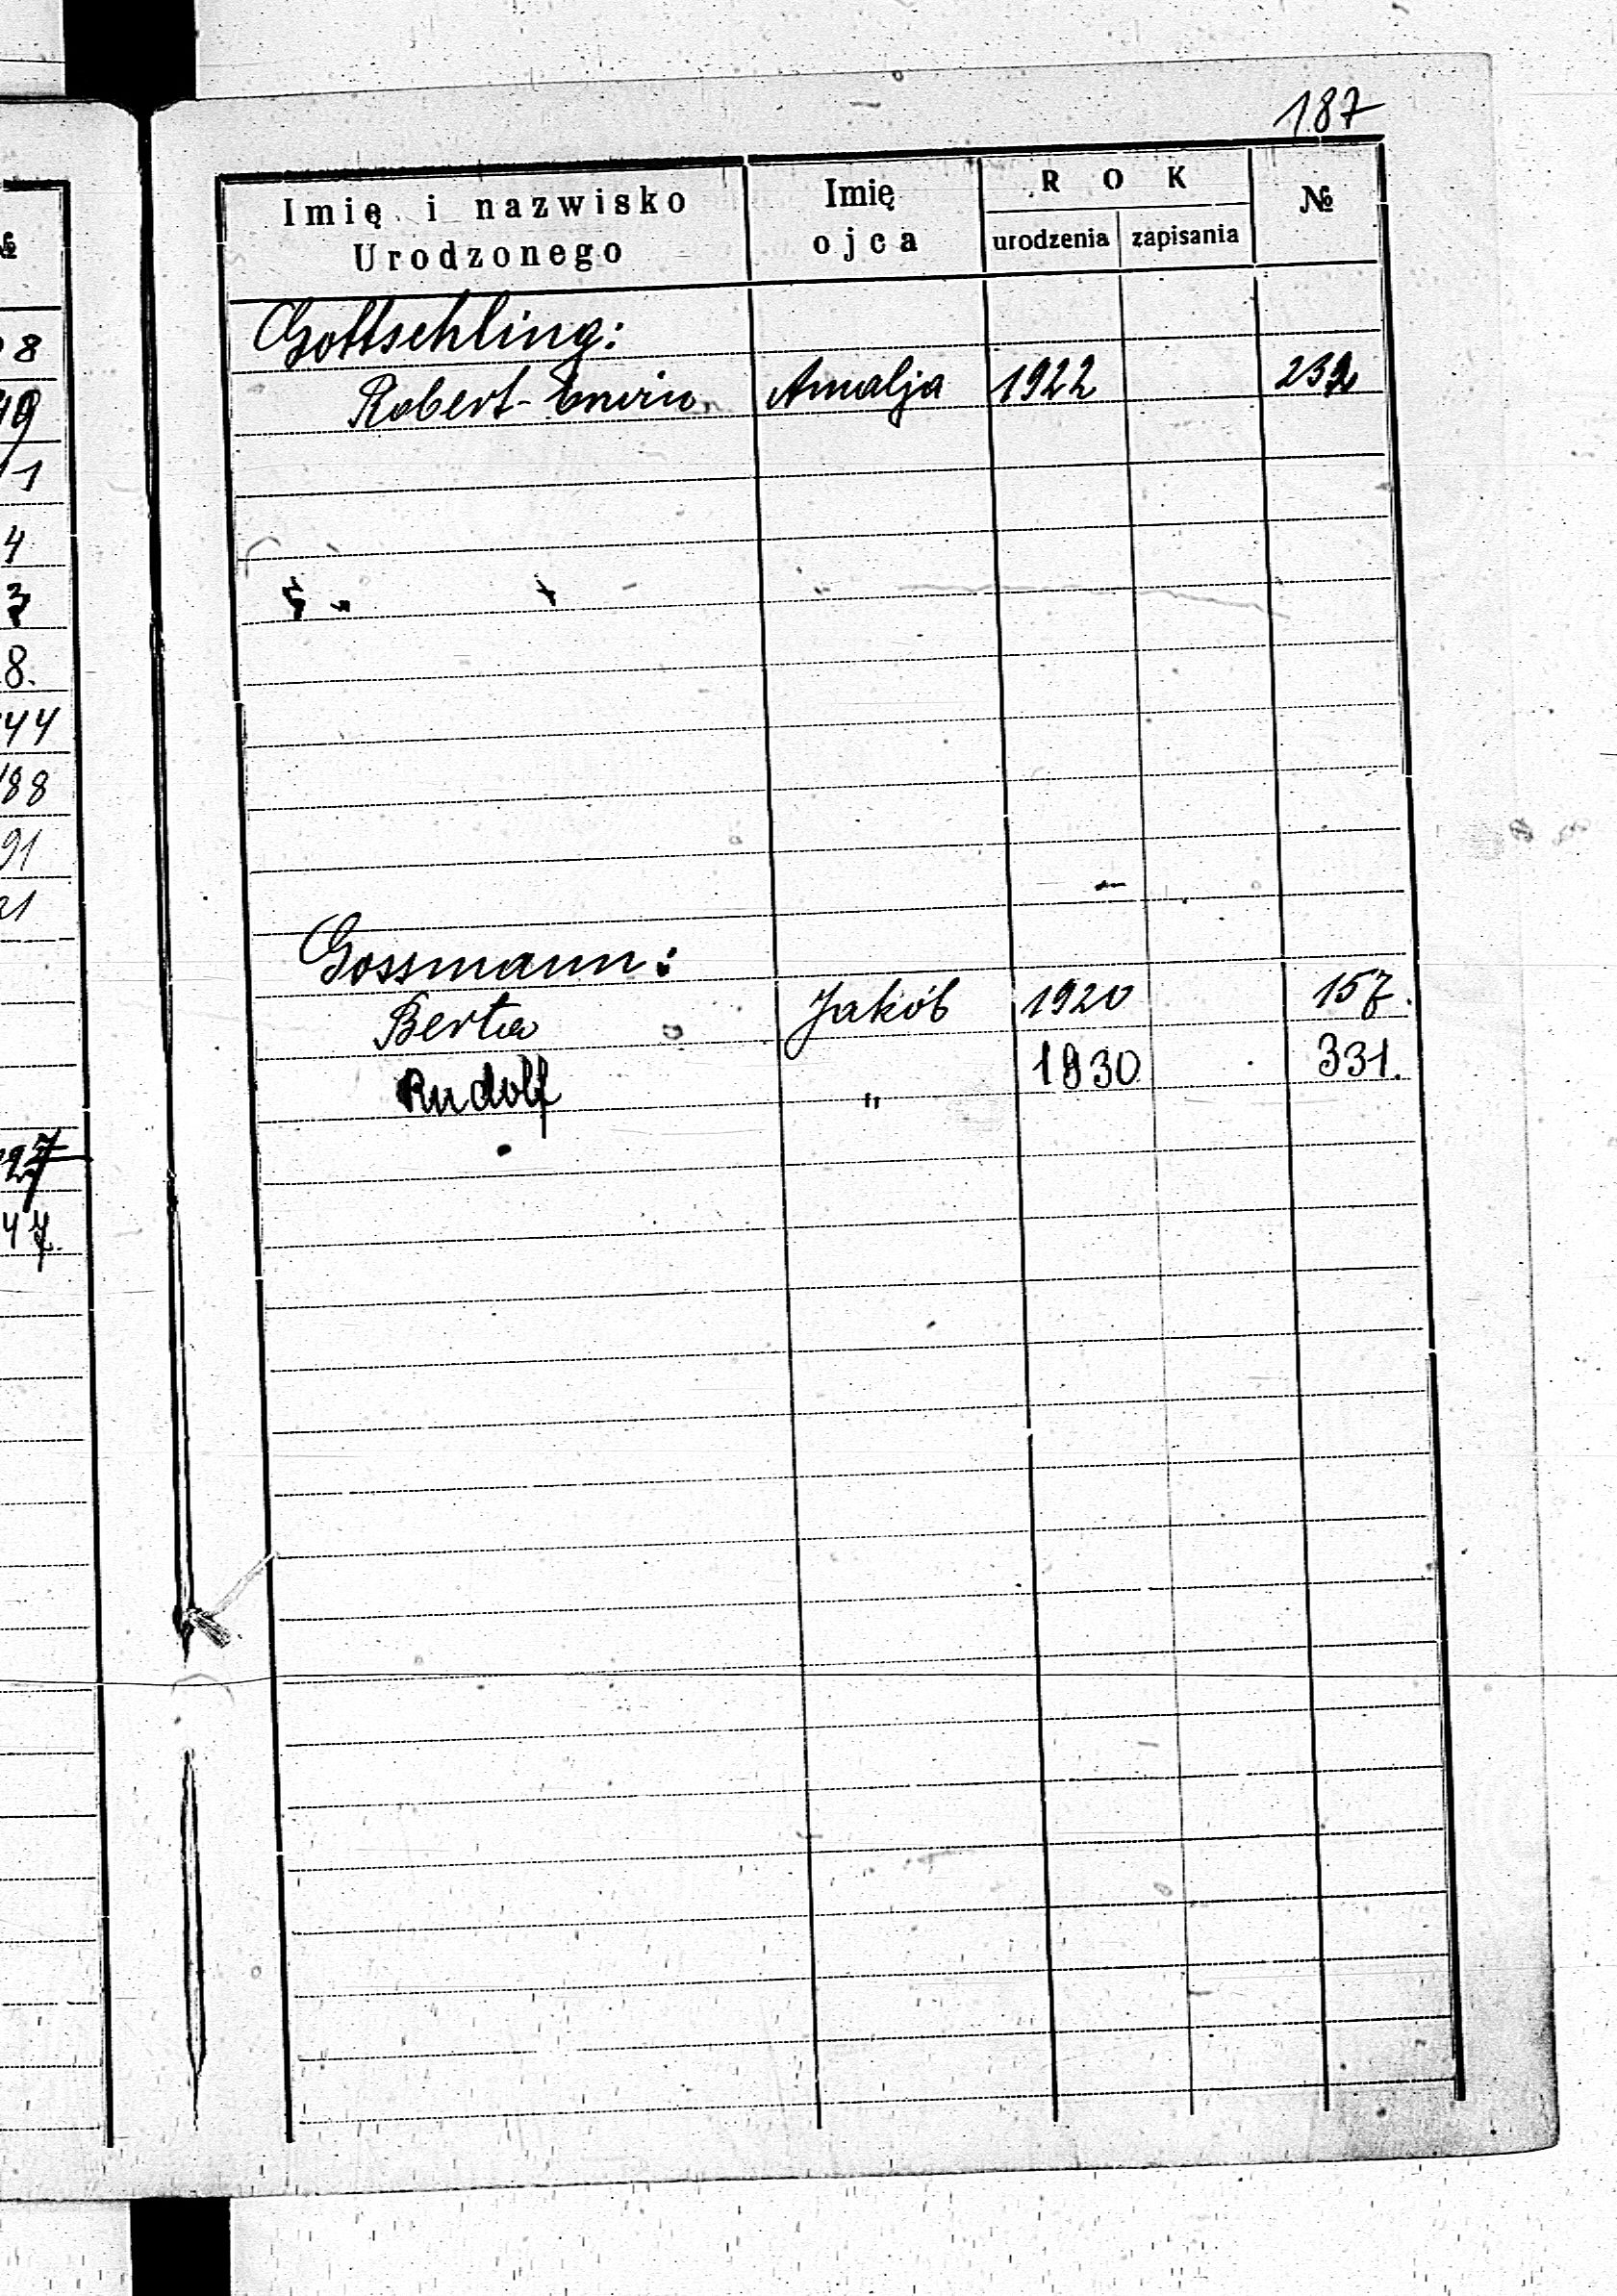 187
Imię i nazwisko Urodzonego
Imię ojca
ROK
urodzenia zapisania
№
Gottschling:
Robert-Erwin Amalja 1922
Gossmann:
Berta Jakób 1920 157.
Rudolf " 1930 331.
8
19
11
4
3
8.
44
188
91
21
127
47.